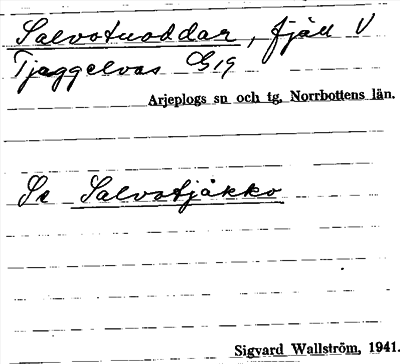 Salvotuoddar, fjäll V
Tjeggelvas G19
Arjeplogs sn och tg, Norrbottens län.
Se Salvotjåkko
Sigvard Wallström, 1941.